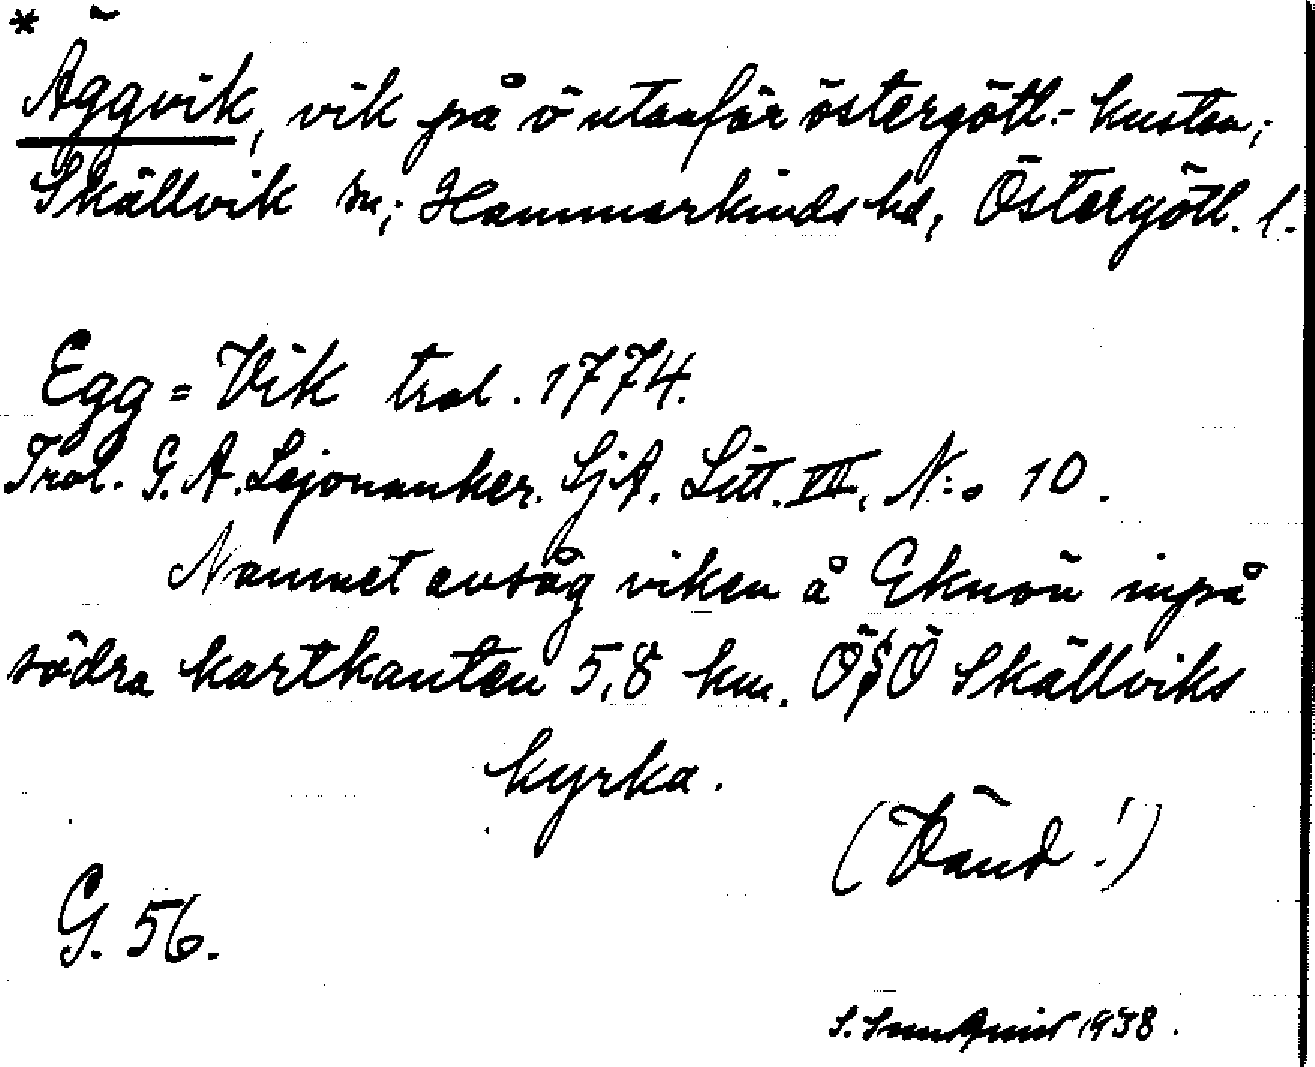 * Äggvik, vik på ö utanför östergötl.-kusten;
Skällvik sn; Hammarkinds hd, Östergötl. l.
Egg=Vik trol. 1774.
Trol. G. A. Lejonanker. SjA. Litt. VII, N:o 10.
Namnet avsåg viken å Eknön inpå
södra kartkanten 5,8 km. ÖSÖ Skällviks
kyrka.
(Vänd!)
G. 56.
S. 1938.